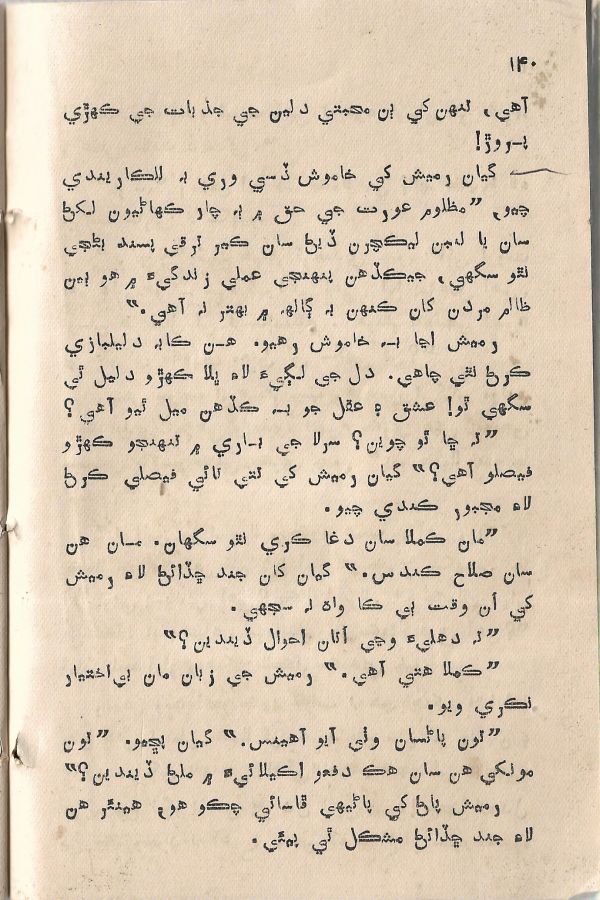 ۱۴۰
آهي، تنهن کي ٻن محبتي دلين جي جذبات جي ڪهڙي
پروڙ!
گيان رميش کي خاموش ڏسي وري به للڪاريندي
چيو، ”مظلوم عورت جي حق ۾ ٻه چار ڪهاڻيون لکڻ
سان يا لنبن ليڪچرن ڏيڻ سان ڪير ترقي پسند بڻجي
نٿو سگهي، جيڪڏهن پنهنجي عملي زندگيءَ ۾ هو ٻين
ظالم مردن کان ڪنهن به ڳالهه ۾ بهتر نه آهي.“
رميش اڃا به خاموش رهيو. هن ڪابه دليلبازي
ڪرڻ نٿي چاهي. دل جي لڳيءَ لاءِ ڀلا ڪهڙو دليل ٿي
سگهي ٿو! عشق ۽ عقل جو به ڪڏهن ميل ٿيو آهي؟
”ته ڇا ٿو چوين؟ سرلا جي باري ۾ تنهنجو ڪهڙو
فيصلو آهي؟“ گيان رميش کي تتي تائي فيصلي ڪرڻ
لاءِ مجبور ڪندي چيو.
”مان ڪملا سان دغا ڪري نٿو سگهان. مان هن
سان صلاح ڪندس.“ گيان کان جند ڇڏائڻ لاءِ رميش
کي اُن وقت ٻي ڪا واهه نه سجهي.
”ته دهليءَ وڃي اُتان احوال ڏيندين؟“
”ڪملا هتي آهي.“ رميش جي زبان مان بي‌اختيار
نڪري ويو.
”تون پاڻسان وٺي آيو آهينس.“ گيان پڇيو. ”تون
مونکي هن سان هڪ دفعو اڪيلائيءَ ۾ ملڻ ڏيندين؟“
رميش پاڻ کي پاڻيهي ڦاسائي چڪو هو، هينئر هن
لاءِ جند ڇڏائڻ مشڪل ٿي پيئي.